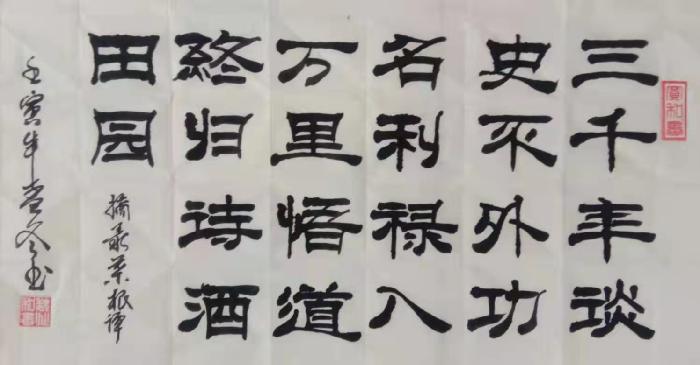 三千年谈
史不外功
名利禄八
万里悟道
終归诗酒
田园
摘录菜根谭
壬寅年孟冬书